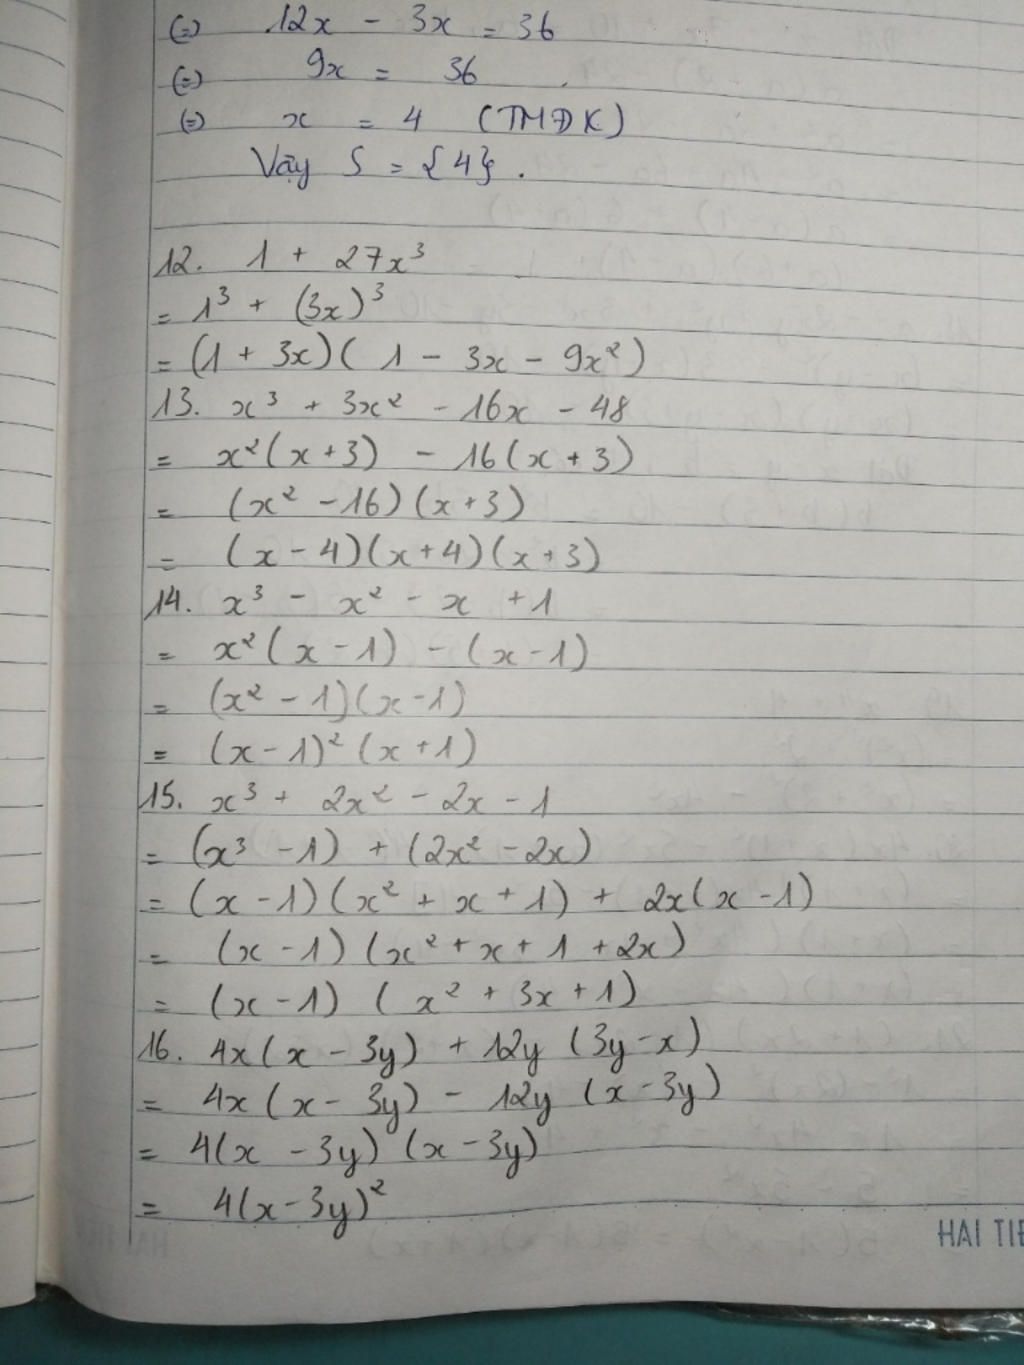 (=) 12x - 3x = 36
(=) 9x = 36
(=) x = 4 (TMĐK)
Vậy S = {4}.
12. 1 + 27x³
= 1³ + (3x)³
= (1 + 3x)( 1 - 3x - 9x²)
13. x³ + 3x² - 16x - 48
= x²(x+3) - 16(x+3)
= (x² - 16)(x+3)
= (x - 4)(x+4)(x+3)
14. x³ - x² - x + 1
= x²(x - 1) - (x - 1)
= (x² - 1)(x - 1)
= (x - 1)² (x + 1)
15. x³ + 2x² - 2x - 1
= (x³ - 1) + (2x² - 2x)
= (x - 1)(x² + x + 1) + 2x(x - 1)
= (x - 1)(x² + x + 1 + 2x)
= (x - 1) (x² + 3x + 1)
16. 4x(x - 3y) + 12y (3y - x)
= 4x(x - 3y) - 12y (x - 3y)
= 4(x - 3y) (x - 3y)
= 4(x - 3y)²
HAI TIẾ